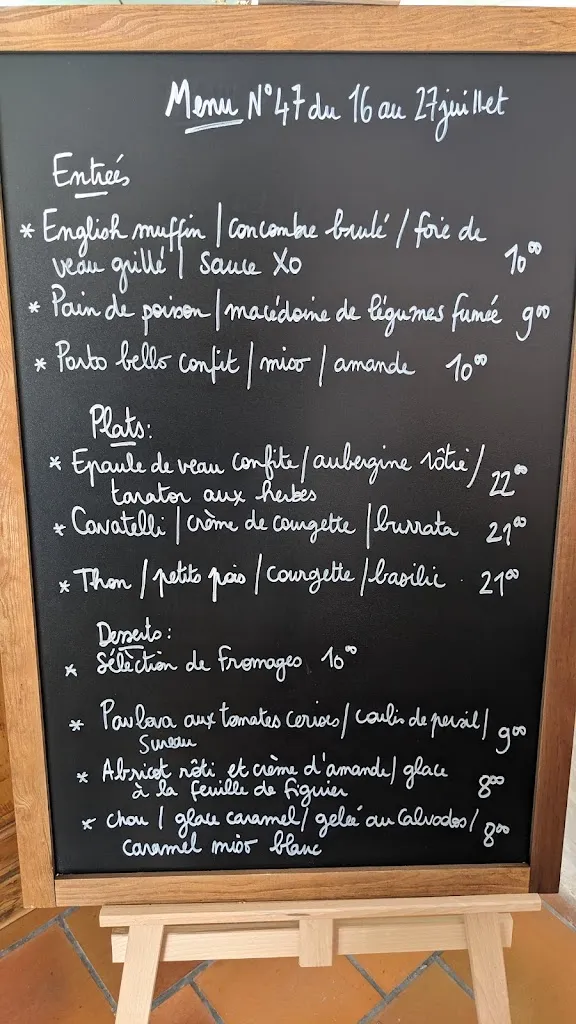 Menu N°47 du 16 au 27 juillet
Entrées
* English muffin / concombre brulé / foie de
veau grillé / sauce XO 10⁰⁰
* Pain de poison / macédoine de légumes fumée 9⁰⁰
* Porto bello confit / miso / amande 10⁰⁰
Plats:
* Epaule de veau confite / aubergine rôtie /
tarator aux herbes 22⁰⁰
* Cavatelli / crème de courgette / burrata 21⁰⁰
* Thon / petits pois / courgette / basilic. 21⁰⁰
Desserts:
* Sélèction de Fromages 10⁰⁰
* Pavlova aux tomates cerises / coulis de persil /
Sureau 9⁰⁰
* Abricot rôti et crème d'amande / glace
à la feuille de figuier 8⁰⁰
* chou / glace caramel / gelée au Calvados /
caramel miso blanc 8⁰⁰